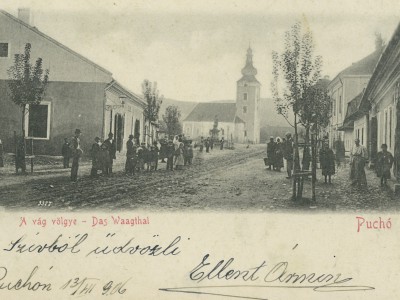 3377
A vág völgye - Das Waagthal
Puchó
Szívből üdvözli
Puchón 13/VI 906
Ellent Ármin